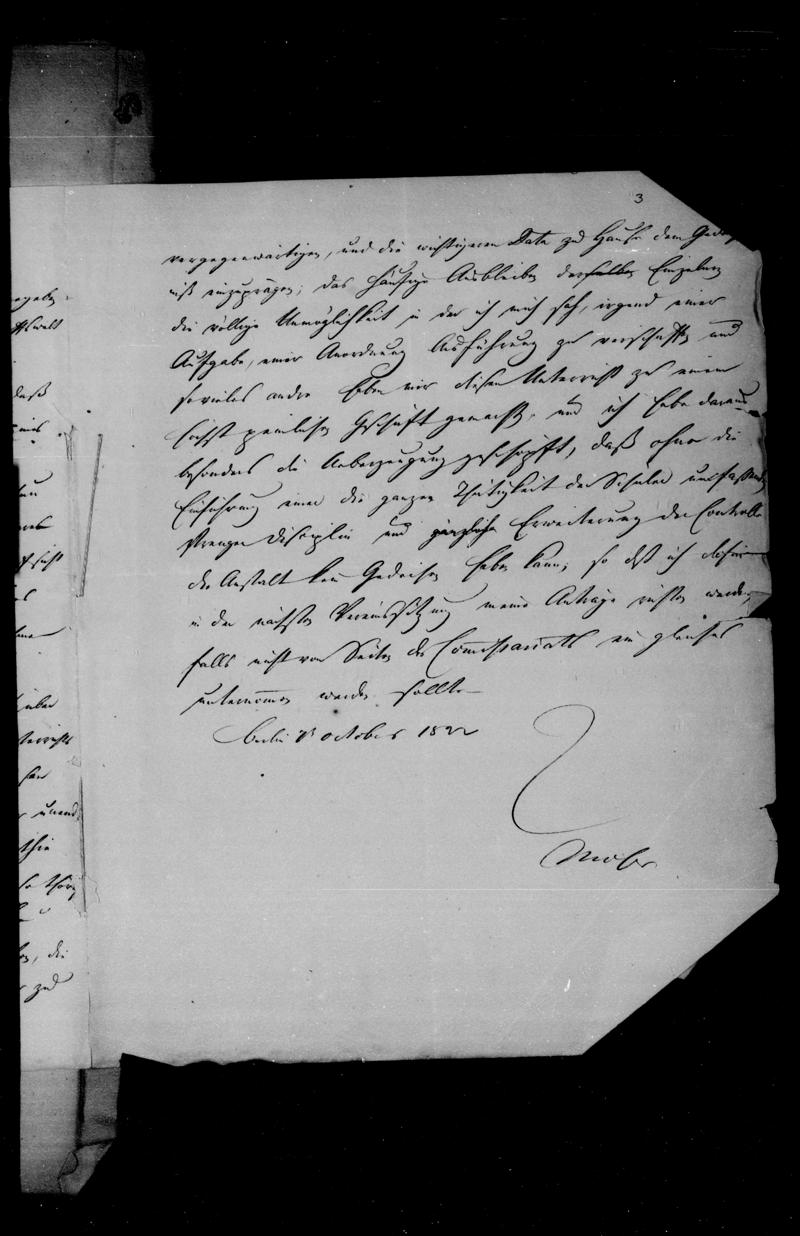 3
vergegenwärtigen, und die wichtigeren Data zu Hause dem Gedächt
niß einzuprägen; das häufige Ausbleiben derselben Einzelnen
die völlige Unmöglichkeit in der ich mich sah, irgend einer
Aufgabe, einer Anordnung Ausführung zu verschaffen und
sovieles andre haben mir diesen Unterricht zu einem
höchst peinlichen Geschäft gemacht, und ich habe daraus
besonders die Ueberzeugung geschöpft, daß ohne die
Einführung einer die ganzen Thätigkeit der Schüler umfassenden
strengen Disciplin und gänzliche Erweiterung der Controlle
die Anstalt kein Gedeihen haben kann; so daß ich dahin
in der nächsten Vereinssitzung meine Anträge richten werde,
falls nicht von Seiten des Commissariats ein gleiches
unternommen werden sollte
Berlin October 1822
Moser
egeben
daß
unend
die
zu